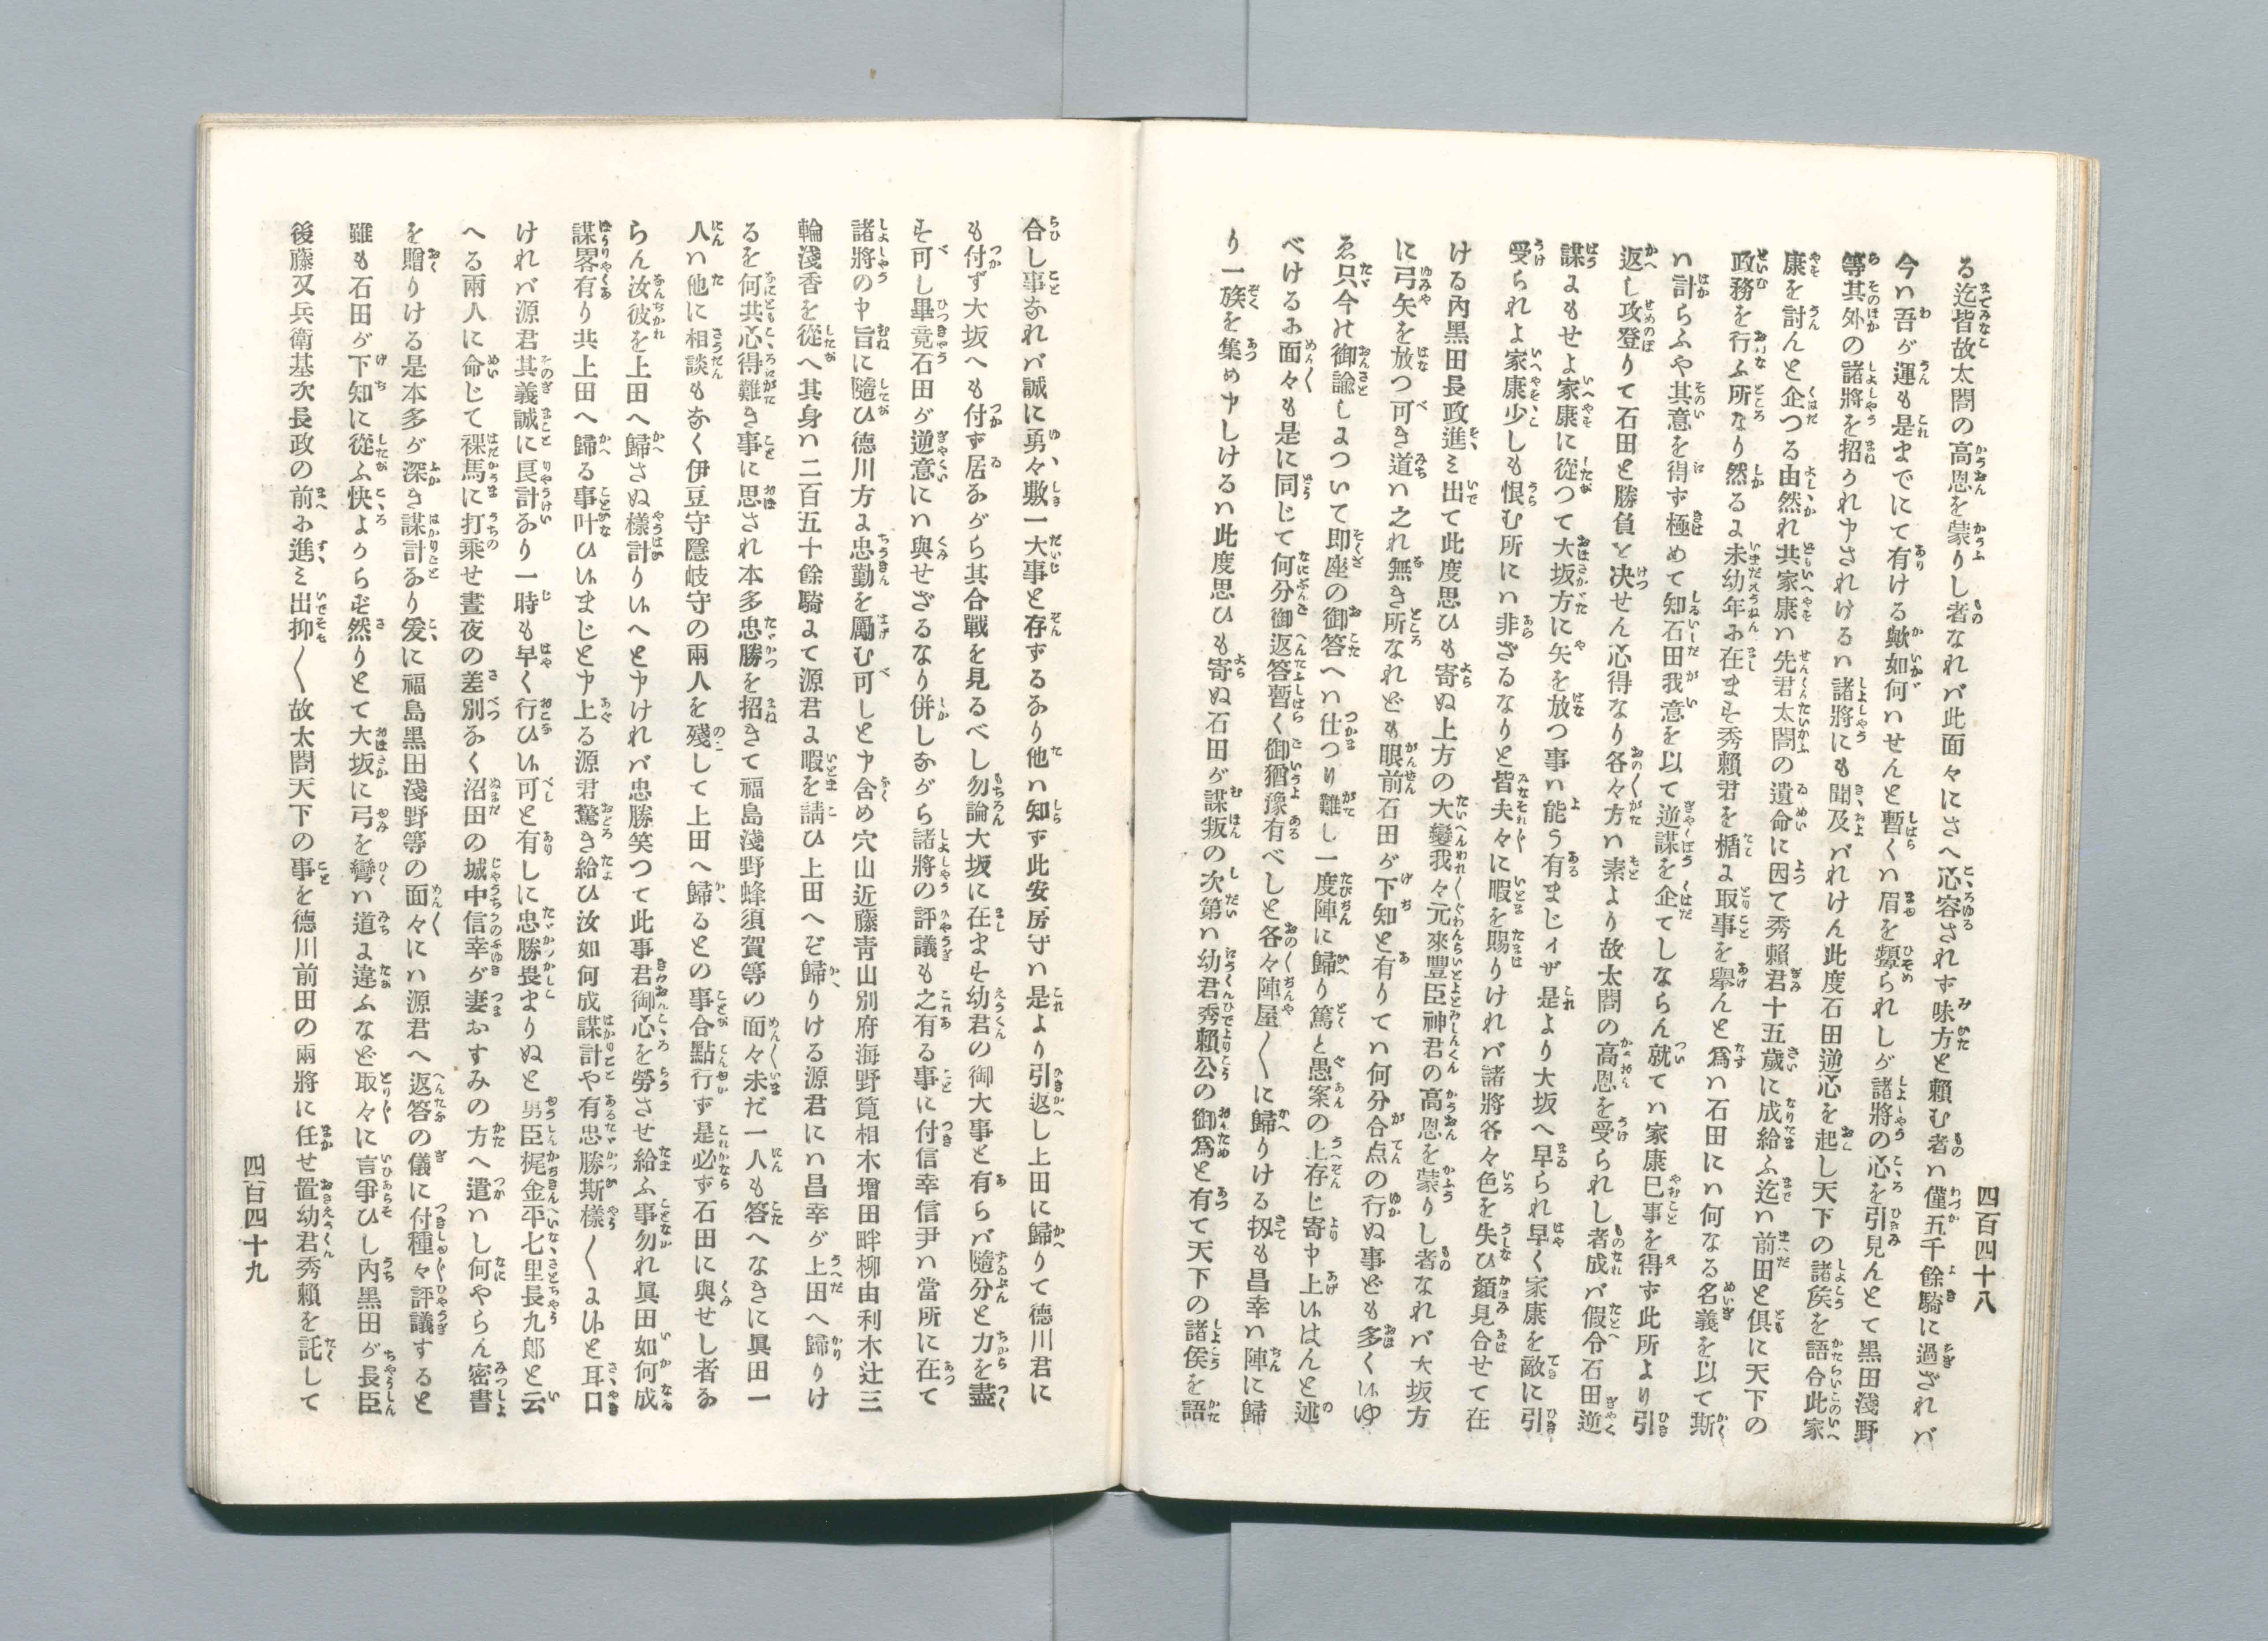 四百四十八
る迄皆故太閤の高恩を蒙りし者なれバ此面々にさへ心容されず味方と賴む者ハ僅五千餘騎に過ざれバ
今ハ吾が運も是までにて有ける歟如何ハせんと暫くハ眉を顰られしが諸將の心を引見んとて黒田淺野
等其外の諸將を招かれ申されけるハ諸將にも聞及バれけん此度石田逆心を起し天下の諸矦を語合此家
康を討んと企つる由然れ共家康ハ先君太閤の遺命に因て秀賴君十五歲に成給ふ迄ハ前田と俱に天下の
政務を行ふ所なり然るに未幼年お在ます秀賴君を楯に取事を擧んと爲ハ石田にハ何なる名義を以て斯
ハ計らふや其意を得ず極めて知石田我意を以て逆謀を企てしならん就てハ家康已事を得ず此所より引
返し攻登りて石田と勝負を决せん心得なり各々方ハ素より故太閤の高恩を受られし者成バ假令石田逆
謀にもせよ家康に從つて大坂方に矢を放つ事ハ能う有まじィザ是より大坂へ早られ早く家康を敵に引
受られよ家康少しも恨む所にハ非ざるなりと皆夫々に暇を賜りけれバ諸將各々色を失ひ顏見合せて在
ける內黒田長政進ミ出て此度思ひも寄ぬ上方の大變我々元來豐臣神君の高恩を蒙りし者なれバ大坂方
に弓矢を放つ可き道ハ之れ無き所なれども眼前石田が下知と有りてハ何分合点の行ぬ事ども多く候ゆ
ゑ只今の御諭しについて即座の御答へハ仕つり難し一度陣に歸り篤と愚案の上存じ寄申上候はんと述
べけるお面々も是に同じて何分御返答暫く御猶豫有べしと各々陣屋〱に歸りける扨も昌幸ハ陣に歸
り一族を集め申しけるハ此度思ひも寄ぬ石田が謀叛の次第ハ幼君秀賴公の御爲と有て天下の諸侯を語
合し事なれバ誠に勇々敷一大事と存ずるなり他ハ知ず此安房守ハ是より引返し上田に歸りて德川君に
も付ず大坂へも付ず居ながら其合戰を見るべし勿論大坂に在ます幼君の御大事と有らバ隨分と力を盡
す可し畢竟石田が逆意にハ與せざるなり併しながら諸將の評議も之有る事に付信幸信尹ハ當所に在て
諸將の申旨に隨ひ德川方に忠勤を勵む可しと申含め穴山近藤靑山別府海野筧相木增田畔柳由利木辻三
輪淺香を從へ其身ハ二百五十餘騎にて源君に暇を請ひ上田へぞ歸りける源君にハ昌幸が上田へ歸りけ
るを何共心得難き事に思され本多忠勝を招きて福島淺野蜂須賀等の面々未だ一人も答へなきに眞田一
人ハ他に相談もなく伊豆守隱岐守の兩人を殘して上田へ歸るとの事合點行ず是必ず石田に與せし者な
らん汝彼を上田へ歸さぬ樣計り候へと申けれバ忠勝笑つて此事君御心を勞させ給ふ事勿れ眞田如何成
謀畧有り共上田へ歸る事叶ひ候まじと申上る源君驚き給ひ汝如何成謀計や有忠勝斯樣〱に候と耳口
ければ源君其義誠に良計なり一時も早く行ひ候可と有しに忠勝畏まりぬと勇臣梶金平七里長九郞と云
へる兩人に命じて裸馬に打乘せ晝夜の差別なく沼田の城中信幸が妻おすみの方へ遣ハし何やらん密書
を贈りける是本多が深き謀計なり爰に福島黒田淺野等の面々にハ源君へ返答の儀に付種々評議すると
雖も石田が下知に從ふ快よからず然りとて大坂に弓を彎ハ道に違ふなど取々に言爭ひし內黒田が長臣
後藤又兵衛基次長政の前お進ミ出抑〱故太閤天下の事を德川前田の兩將に任せ置幼君秀賴を託して
四百四十九